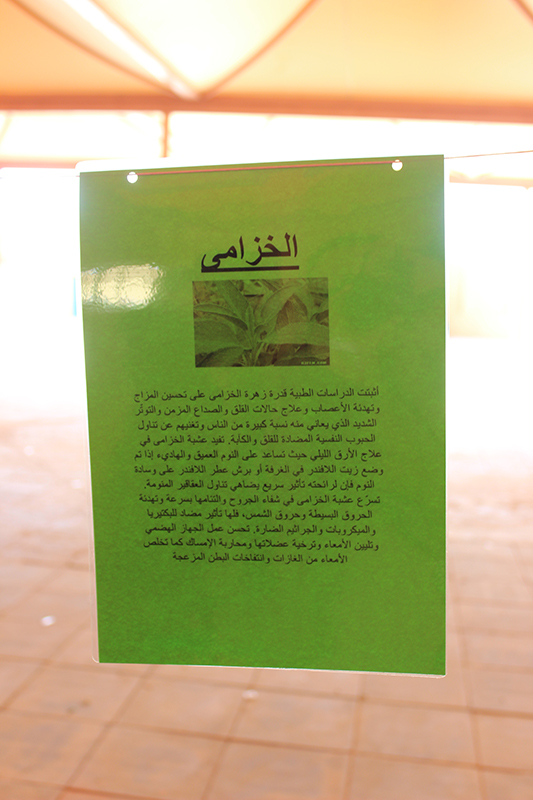 الخزامى
أثبتت الدراسات الطبية قدرة زهرة الخزامى على تحسين المزاج
وتهدئة الأعصاب وعلاج حالات القلق والصداع المزمن والتوتّر
الشديد الذي يعاني منه نسبة كبيرة من الناس وتغنيهم عن تناول
الحبوب النفسية المضادة للقلق والكآبة. تفيد عشبة الخزامى في
علاج الأرق الليلي حيث تساعد على النوم العميق والهاديء إذا تم
وضع زيت اللافندر في الغرفة أو برش عطر اللافندر على وسادة
النوم فإن لرائحته تأثير سريع يضاهي تناول العقاقير المنومة.
تسرّع عشبة الخزامى في شفاء الجروح والتئامها بسرعة وتهدئة
الحروق البسيطة وحروق الشمس، فلها تأثير مضاد للبكتيريا
والميكروبات والجراثيم الضارة. تحسن عمل الجهاز الهضمي
وتليين الأمعاء وترخية عضلاتها ومحاربة الإمساك كما تخلص
الأمعاء من الغازات وانتفاخات البطن المزعجة